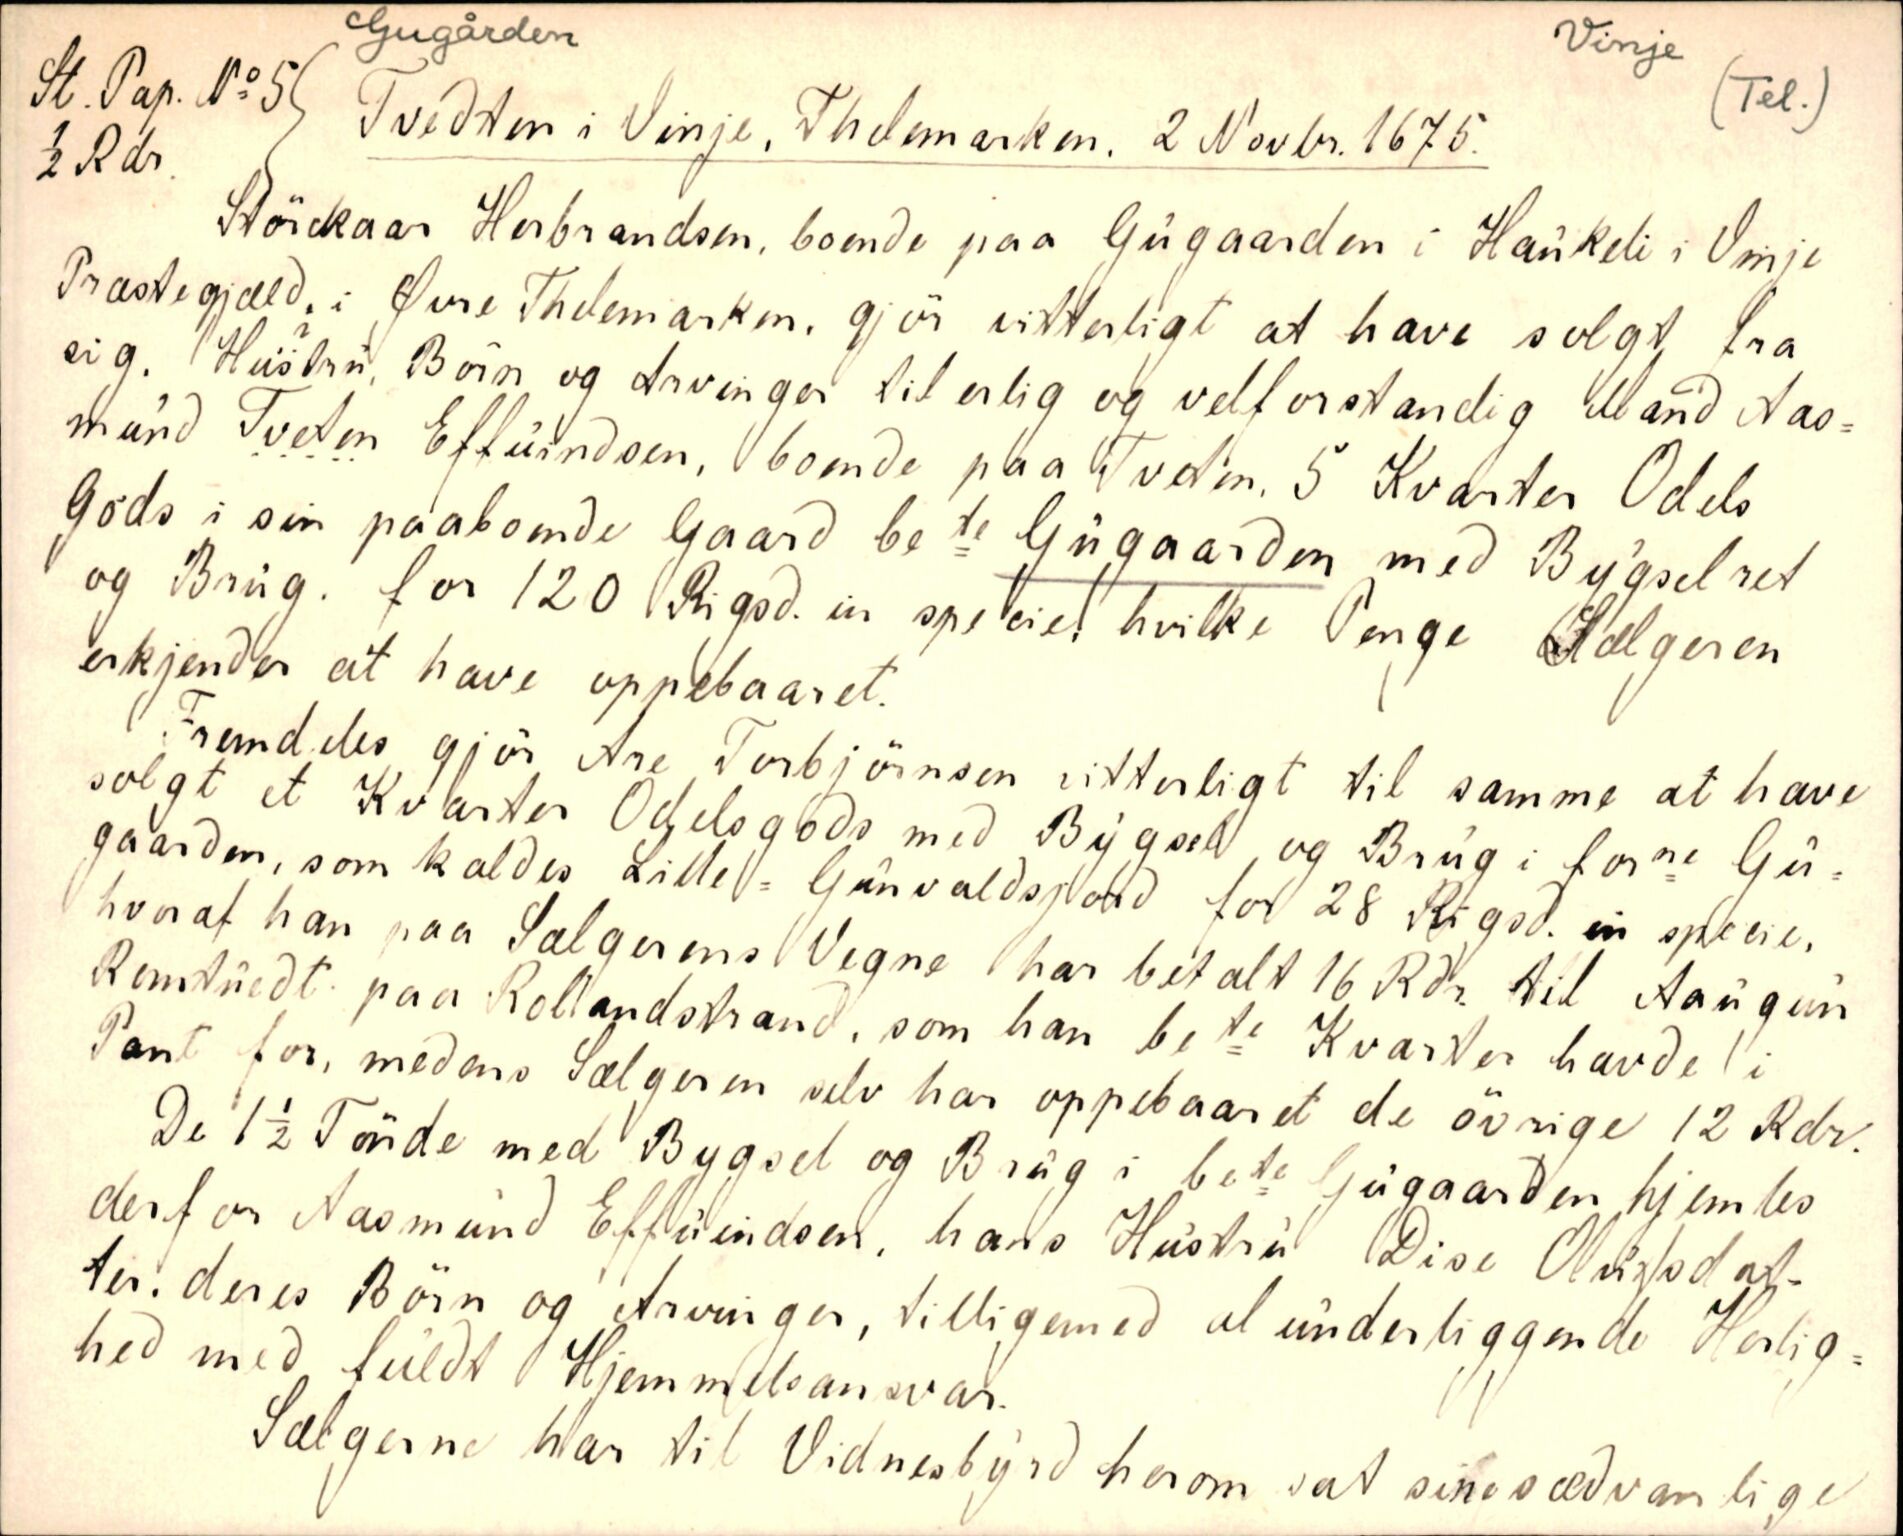 Gugården
Vinje
(Tel.)
St. Pap. No 5
½ Rdr.
Tvedten i Vinje, Thelemarken, 2 Novbr. 1675.
Störckaar Herbrandsen, boende paa Gŭgaarden i Haŭkeli i Vinje
Præstegjæld, i Øvre Thelemarken, gjör vitterligt at have solgt fra
sig, Hŭstrŭ, Börn og Arvinger til erlig og velforstandig Mand Aas=
mŭnd Tveten Effŭindsen, boende paa Tveten, 5 Kvarter Odels
Gods i sin paaboende Gaard bete Gŭgaarden med Bygselret
og Brŭg, for 120 Rigsd. in specie, hvilke Penge Sælgeren
erkjender at have oppebaaret.
Fremdeles gjör Are Torbjörnsen vitterligt til samme at have
solgt et Kvarter Odelsgods med Bygsel og Brŭg i forne Gŭ=
gaarden, som kaldes Lille=Gŭnvaldsjord for 28 Rigsd. in specie,
hvoraf han paa Sælgerens Vegne har betalt 16 Rdr. til Aaŭgŭn
Romtŭedt paa Rollandstrand, som han bete Kvarter havde i
Pant for, medens Sælgeren selv har oppebaaret de övrige 12 Rdr.
De 1½ Tönde med Bygsel og Brŭg i bete Gŭgaarden hjemles
derfor Aasmŭnd Effŭindsen, hans Hŭstrŭ Dise Olŭfsdat-
ter, deres Börn og Arvinger, tilligemed al ŭnderliggende Herlig=
hed med fŭldt Hjemmelsansvar.
Sælgerne har til Vidnesbyrd herom sat sine sædvanlige